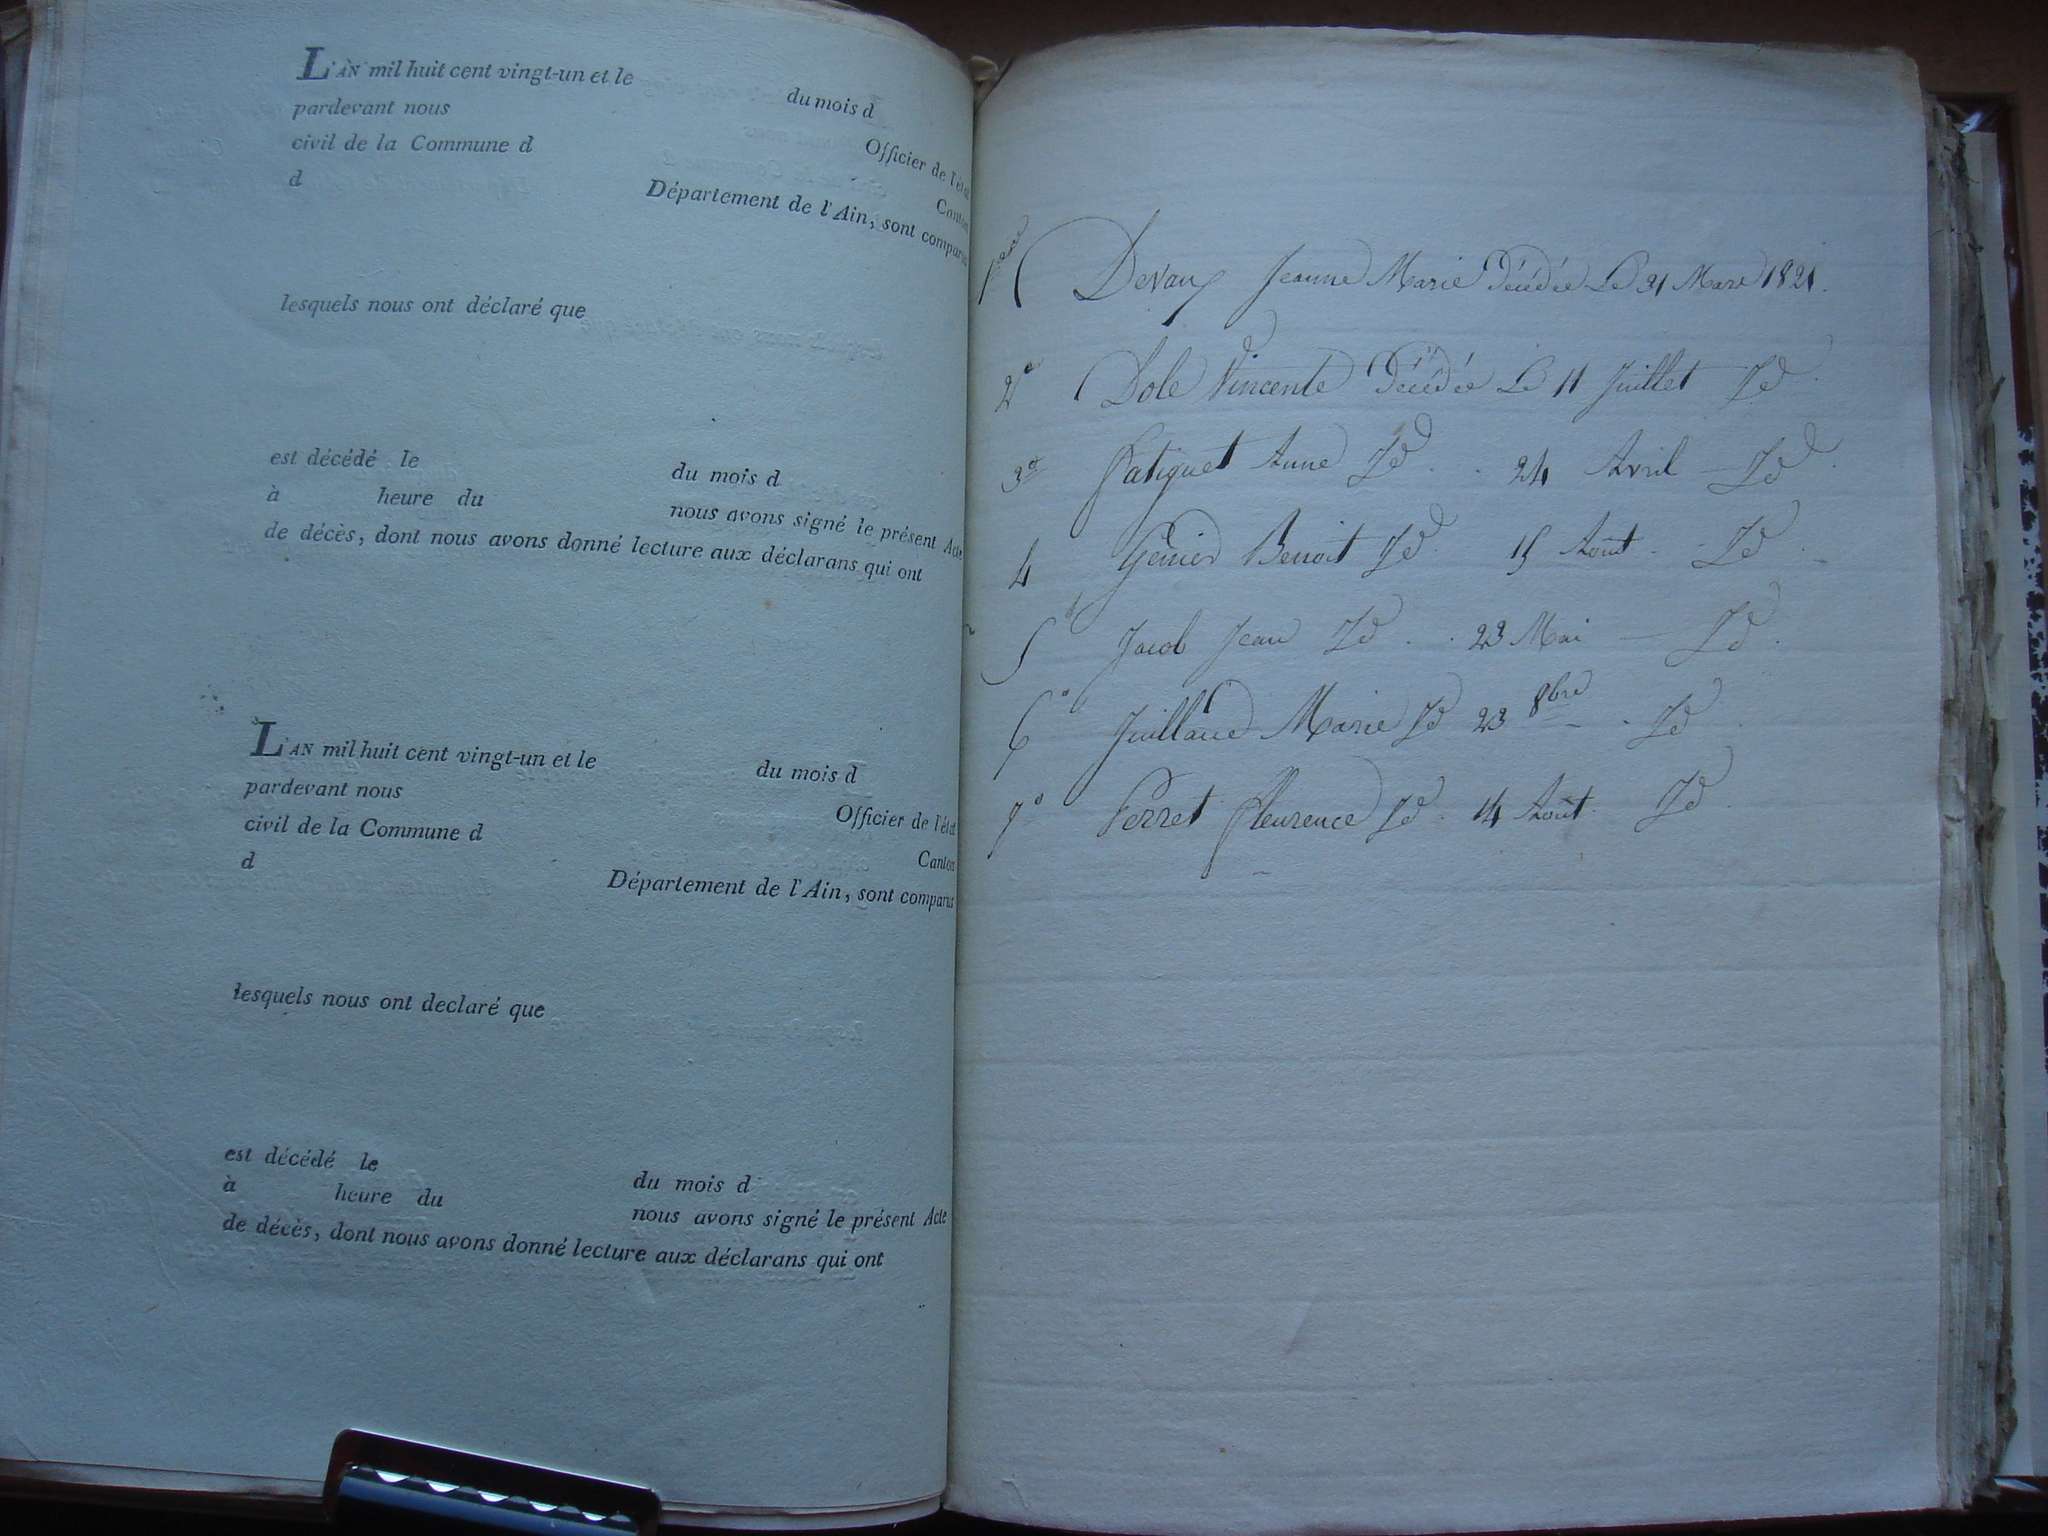 L'AN mil huit cent vingt-un et le du mois d
pardevant nous Officier de l'état
civil de la Commune d Canton
d Département de l'Ain, sont comparus
lesquels nous ont déclaré que
est décédé le du mois d
à heure du nous avons signé le présent Acte
de décès, dont nous avons donné lecture aux déclarans qui ont
L'AN mil huit cent vingt-un et le du mois d
pardevant nous Officier de l'état
civil de la Commune d Canton
d Département de l'Ain, sont comparus
lesquels nous ont declaré que
est décédé le du mois d
à heure du nous avons signé le présent Acte
de décès, dont nous avons donné lecture aux déclarans qui ont
Devaux Jeanne Marie Décédée Le 21 Mars 1821.
2e Dole Vincente Décédée Le 11 Juillet Id
3e Patiguet Anne Id 24 Avril Id
4 Genier Benoit Id 15 Août Id
5 Jacob Jean Id 23 Mai Id
6° Marie Id 23 8bre Id
7° Perret fleurence Id 14 Août Id